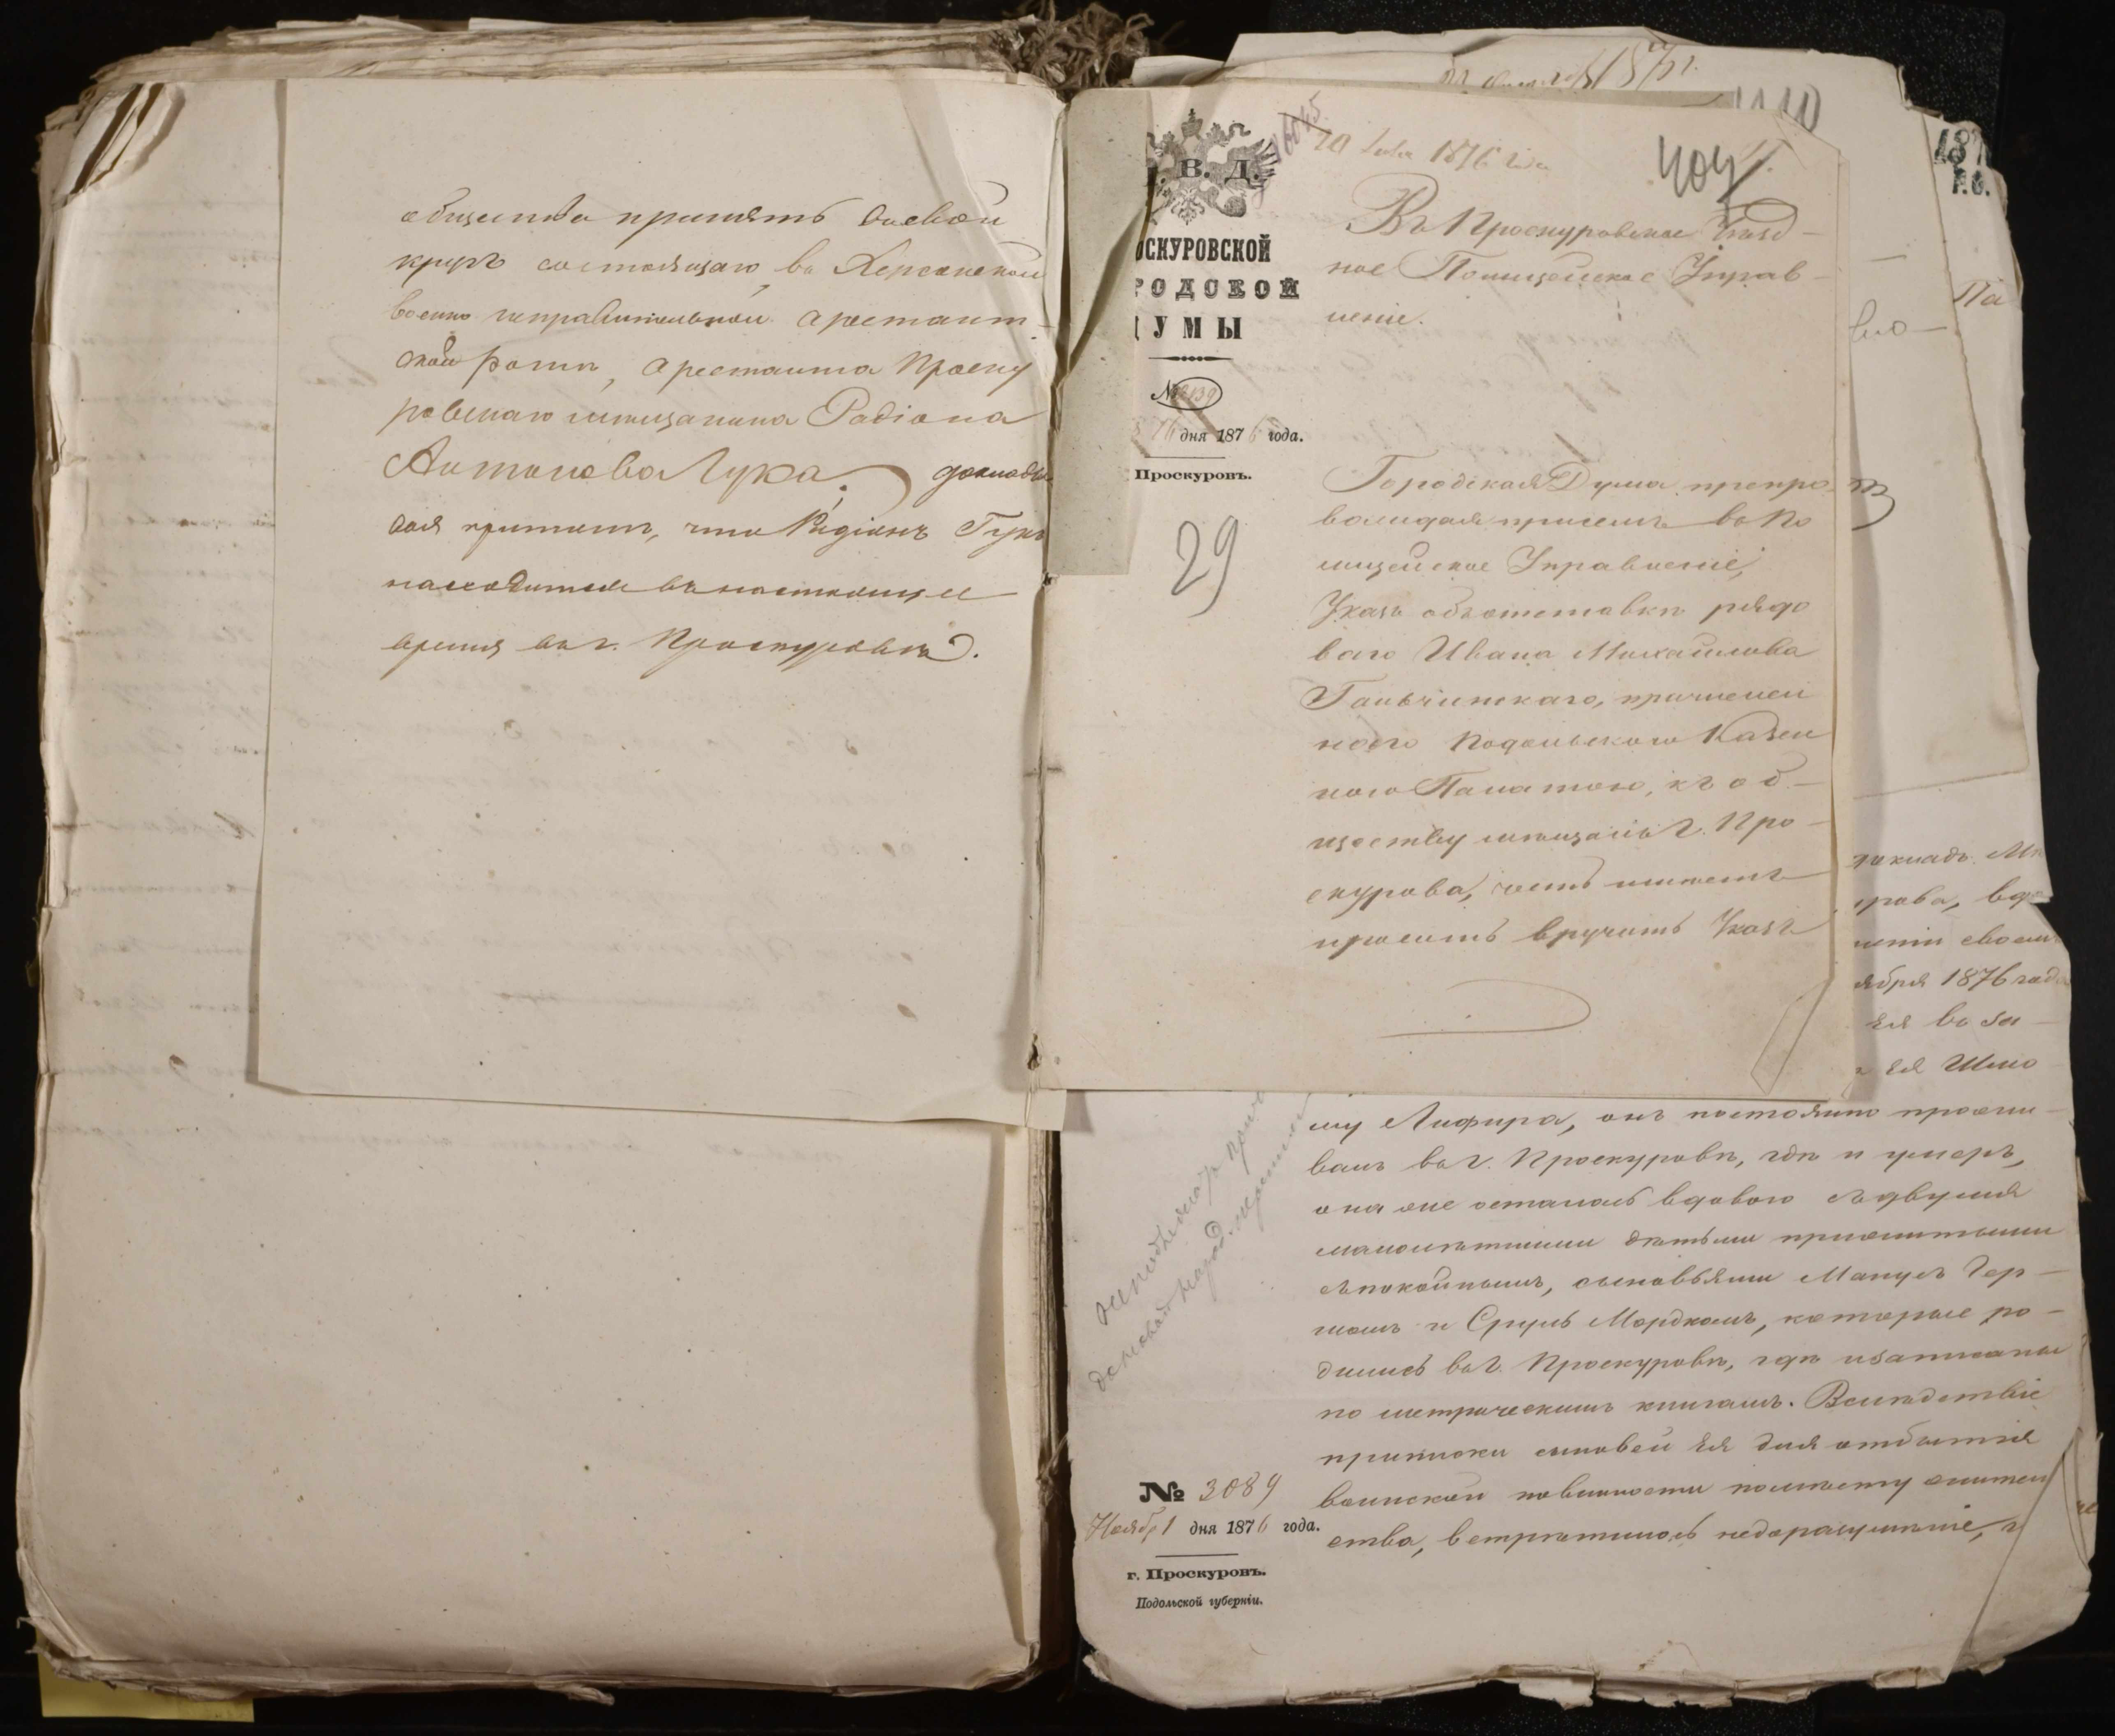 общества принять въ свой
кругъ состоящаго въ Херсонской
военно исправительной арестант-
ской ротѣ, арестанта Проску
ровскаго мѣщанина Радіона
Антонова Гука.
что Радіонъ Гукъ
находится въ настоящее
время въ г. Проскуровѣ.
1876 г.
1110
187
г.
. В. Д.
ОСКУРОВСКОЙ
РОДСКОЙ
УМЫ
№ 3139
дня 1876 года.
Проскуровъ.
29
1876 года
404
Въ Проскуровское Уѣзд-
ное Полицейское Управ-
леніе.
Городская Дума препро-
вождая при семъ въ По
лицейское Управленіе,
Указъ объ отставкѣ рядо
ваго Ивана Михайлова
Ганчинскаго, причислен
наго Подольскою Казен
ною Палатою, къ об-
ществу мѣщанъ г. Про-
скурова, честь имѣетъ
просить вручить Указъ
Па
докладъ
рова, вдо
ніи своемъ
ября 1876 года
ея въ за-
ея Шмо
му Лифира, онъ постоянно прожи-
валъ въ г. Проскуровѣ, гдѣ и умеръ,
она же осталась вдовою съ двумя
малолѣтними дѣтьми прижитыми
съ покойнымъ, сыновьями Мануъ Гер-
шомъ и Сруль Мордкомъ, которые ро-
дились въ г. Проскуровѣ, гдѣ и записаны
по метрическимъ книгамъ. Вслѣдствіе
приписки сыновей ея для отбытія
воинской повинности по мѣсту жител
ства, встрѣтилось недоразумѣніе,
№ 3089
Ноября 1 дня 1876 года.
г. Проскуровъ.
Подольской губерніи.